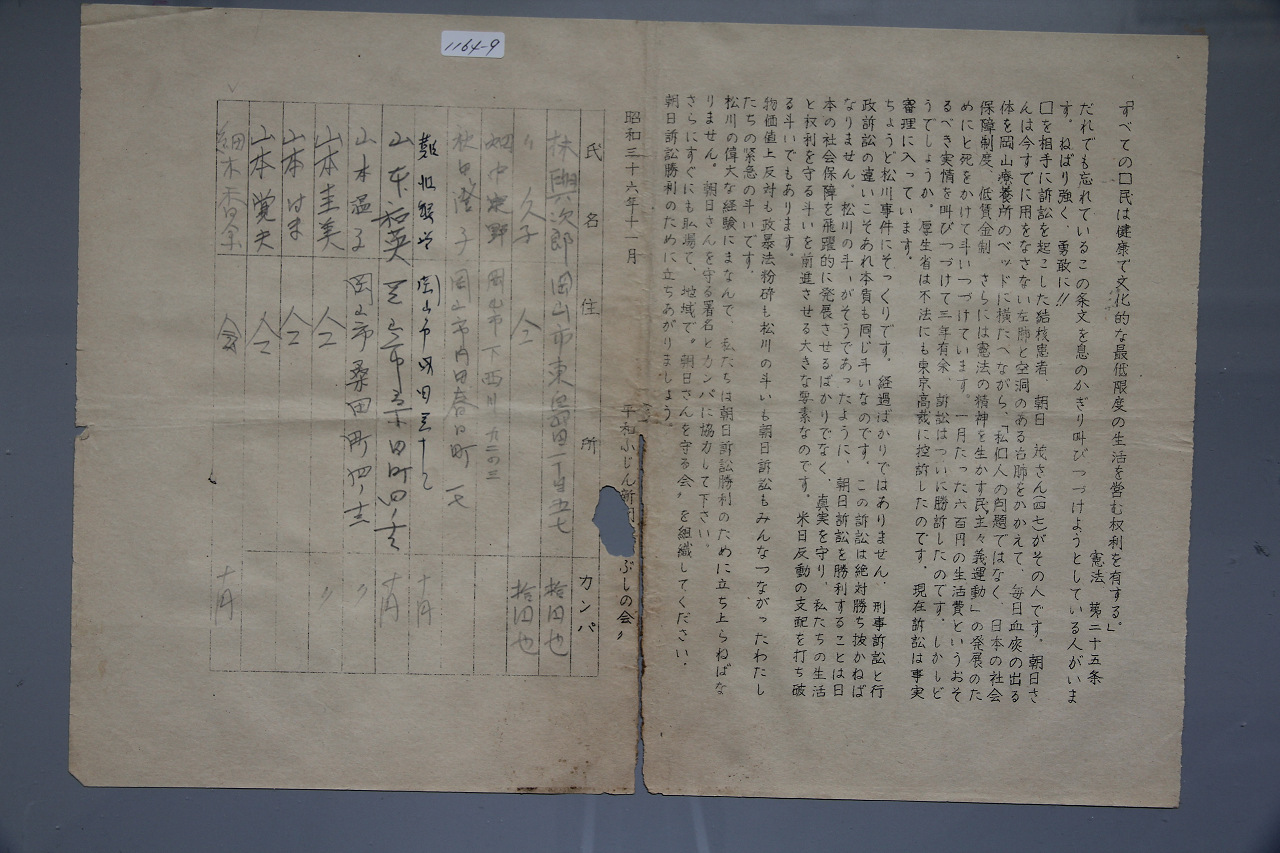 1164-9
「すべての囗民は健康で文化的な最低限度の生活を営む权利を有する。」
憲法 第二十五条
だれでも忘れているこの条文を息のかぎり叫びつづけようとしている人がいま
す。ねばり強く、勇敢に!!
囗を相手に訴訟を起こした結核患者、朝日 茂さん(四七)がその人です。朝日さ
んは今すでに用をなさない左肺と空洞のある右肺をかかえて、毎日血痰の出る
体を岡山療養所のベッドに横たへながら、「私個人の問題ではなく、日本の社会
保障制度、低賃金制 さらには憲法の精神を生かす民主々義運動」の発展のた
めにと死をかけて斗いつづけています。一月たった六百円の生活費というおそ
るべき実情を叫びつづけて三年有余、訴訟はついに勝訴したのです。しかしど
うでしょうか。厚生省は不法にも東京高裁に控訴したのです。現在訴訟は事実
審理に入っています。
ちょうど松川事件にそっくりです。経過ばかりではありません。刑事訴訟と行
政訴訟の違いこそあれ本質も同じ斗いなのです。この訴訟は絶対勝ち抜かねば
なりません。松川の斗いがそうであったように、朝日訴訟を勝利することは日
本の社会保障を飛躍的に発展させるばかりでなく、真実を守り、私たちの生活
と权利を守る斗いを前進させる大きな要素なのです。米日反動の支配を打ち破
る斗いでもあります。
物価値上反対も政暴法粉砕も松川の斗いも朝日訴訟もみんなつながったわたし
たちの緊急の斗いです。
松川の偉大な経験にまなんで、私たちは朝日訴訟勝利のために立ち上らねばな
りません。朝日さんを守る署名とカンパに協力して下さい。
さらにすぐにも职場で、地域で〃朝日さんを守る会〃を組織してください。
朝日訴訟勝利のために立ちあがりましょう。
昭和三十六年十二月 平和ふじん新聞 ぶしの会〃
氏名 住所 カンパ
林 與六次郎 岡山市東島田 拾円也
〃 久子 仝 拾円也
畑中 岡山市下西川 九二の三
秋田 子 岡山市内田春日町 一七
岡山市 十円
山本 和英 市桑田町四ノ 十円
山本温子 岡山市桑田町四ノ 〃
山本圭美 仝 〃
山本はま 仝
山本覚夫 仝
細木香 仝 十円